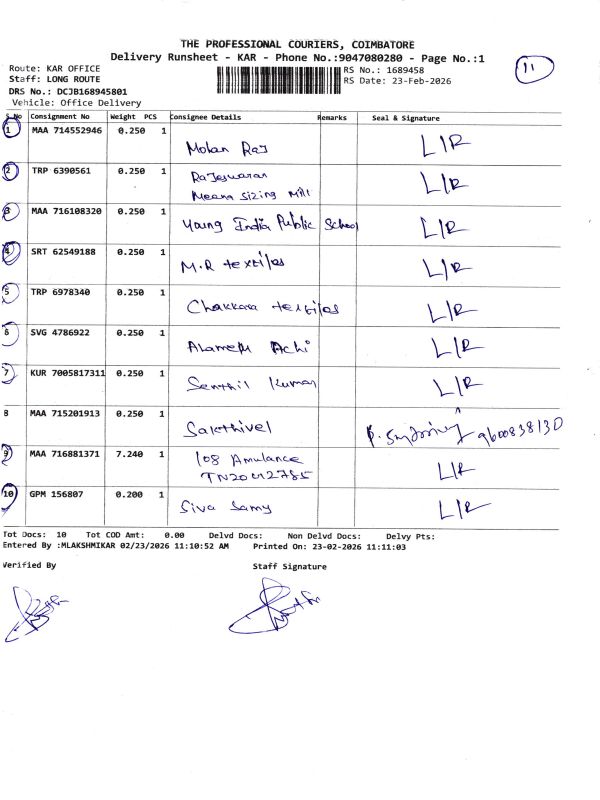 THE PROFESSIONAL COURIERS, COIMBATORE
Delivery Runsheet - KAR - Phone No.:9047080280 - Page No.:1
11
Route: KAR OFFICE
RS No.: 1689458
Staff: LONG ROUTE
RS Date: 23-Feb-2026
DRS No.: DCJB168945801
Vehicle: Office Delivery
S.No Consignment No Weight PCS Consignee Details Remarks Seal & Signature
1 MAA 714552946 0.250 1 Mohan Raj L/R
2 TRP 6390561 0.250 1 Rajeswaran L/R
Meena Sizing Mill
3 MAA 716108320 0.250 1 Young India Public School L/R
4 SRT 62549188 0.250 1 M.R textiles L/R
5 TRP 6978340 0.250 1 Chakkara textiles L/R
6 SVG 4786922 0.250 1 Alamelu Achi L/R
7 KUR 7005817311 0.250 1 Senthil Kumar L/R
8 MAA 715201913 0.250 1 Sakthivel 9600838130
9 MAA 716881371 7.240 1 108 Amulance L/R
TN20G2785
10 GPM 156807 0.200 1 Siva Samy L/R
Tot Docs: 10 Tot COD Amt: 0.00 Delvd Docs: Non Delvd Docs: Delvy Pts:
Entered By :MLAKSHMIKAR 02/23/2026 11:10:52 AM Printed On: 23-02-2026 11:11:03
Verified By Staff Signature